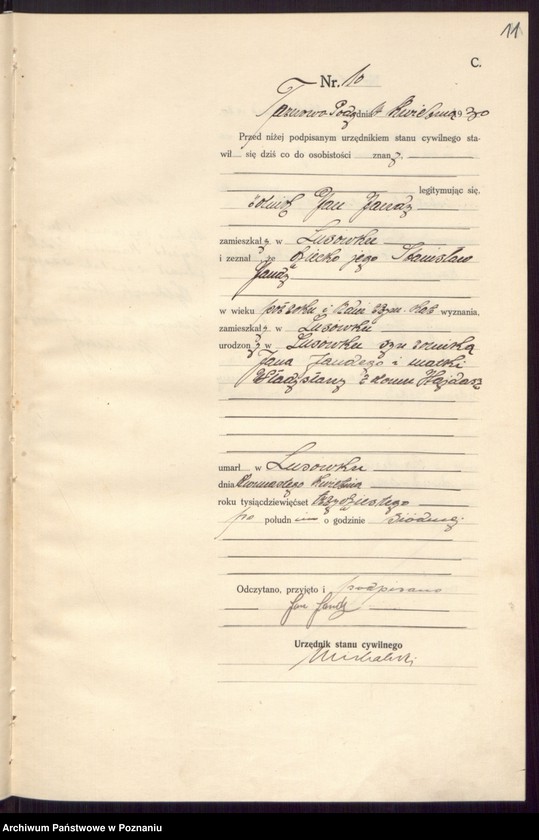 11
C.
Nr. 10
Tarnowo Podg. dnia kwietnia 1930
Przed niżej podpisanym urzędnikiem stanu cywilnego sta-
wił się dziś co do osobistości znany,
legitymując się.
rolnik Jan Jandy
zamieszkały w Lusówku
i zeznał, że dziecko jego Stanisław
Jandy
w wieku pół roku i wyznania,
zamieszkały w Lusówku
urodzony w Lusówku syn rolnika
Jana Jandego i matki
Władysławy z domu
umarł w Lusówku
dnia kwietnia
roku tysiącdziewięćset trzydziestego
po południu o godzinie siódmej
Odczytano, przyjęto i podpisano
Jan Jandy
Urzędnik stanu cywilnego
Michalski
Archiwum Państwowe w Poznaniu